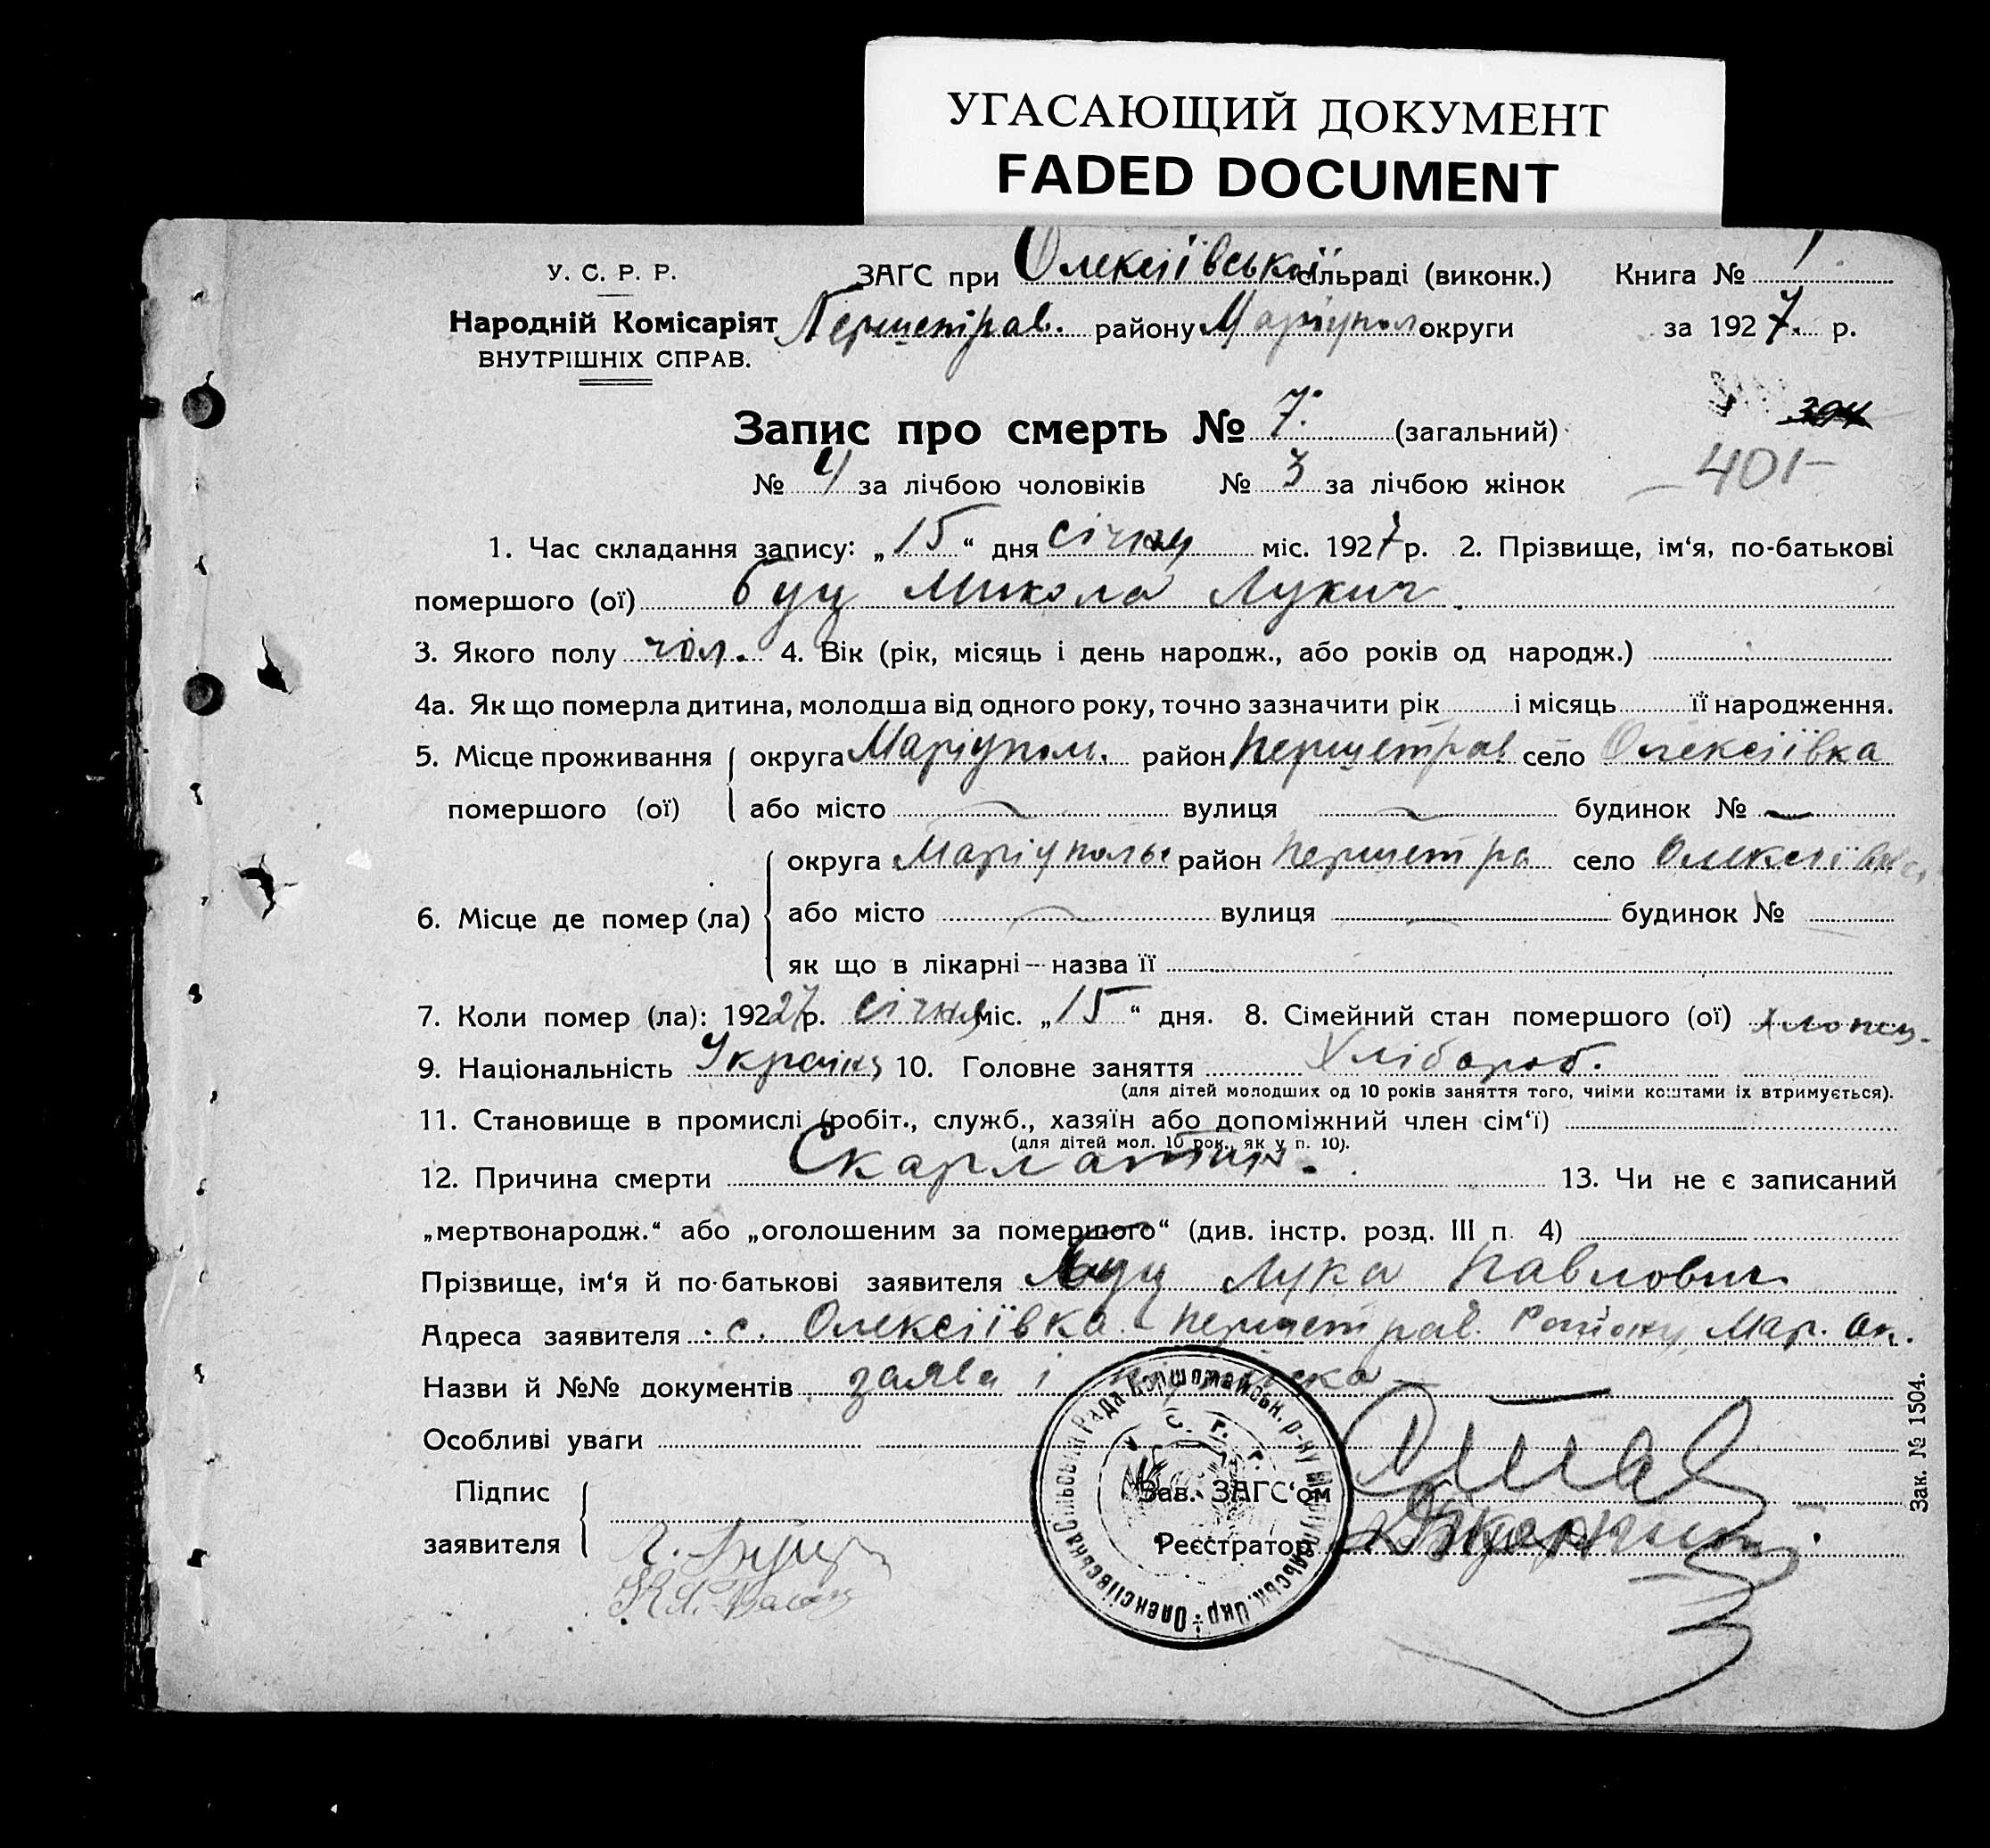 УГАСАЮЩИЙ ДОКУМЕНТ
FADED DOCUMENT
У. С. Р. Р.
Народній Комісаріят
ВНУТРІШНІХ СПРАВ.
ЗАҐС при Олексіївській сільраді (виконк.)
Першетрав. району Маріупол. округи
Книга № 1
за 1927. р.
Запис про смерть № 7. (загальний)
304
401-
№ 4 за лічбою чоловіків № 3 за лічбою жінок
1. Час складання запису: „15“ дня січня міс. 1927 р. 2. Прізвище, ім‘я, по-батькові
помершого (ої) Буц Микола Лукич.
3. Якого полу чол. 4. Вік (рік, місяць і день народж., або років од народж.)
4а. Як що померла дитина, молодша від одного року, точно зазначити рік і місяць її народження.
5. Місце проживання округа Маріупол. район Першетрав село Олексіївка
помершого (ої) або місто вулиця будинок №
округа Маріуполь. район Першетра село Олексіївка
6. Місце де помер (ла) або місто вулиця будинок №
як що в лікарні — назва її
7. Коли помер (ла): 19227 р. січня міс. „15“ дня. 8. Сімейний стан помершого (ої) хлопец.
9. Національність Україн. 10. Головне заняття Хлібороб.
(для дітей молодших од 10 років заняття того, чиїми коштами їх втримується).
11. Становище в промислі (робіт., служб., хазяїн або допоміжний член сім‘ї)
(для дітей мол. 10 рок., як у п. 10).
12. Причина смерти Скарлатин. 13. Чи не є записаний
„мертвонародж.“ або „оголошеним за помершого“ (див. інстр. розд. III п. 4)
Прізвище, ім‘я й по-батькові заявителя Буц Лука Павлович
Адреса заявителя с. Олексіївка Першетрав. Району Мар. Ок.
Назви й №№ документів заява і
Особливі уваги
Підпис
заявителя
Л. Буц
Зав. ЗАГС‘ом
Реєстратор
Олексіївська Сільська Рада Першомайськ. р-ну Маріупільськ. Окр.
Зак. № 1504.